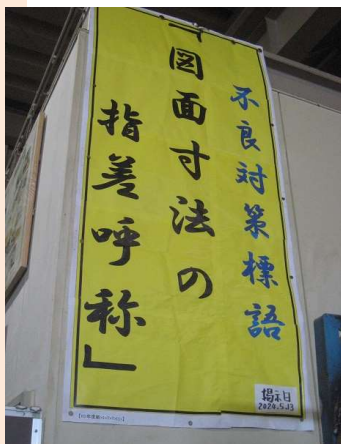 不良対策標語
「図面寸法の
指差呼称」
掲示日
2024.5.13